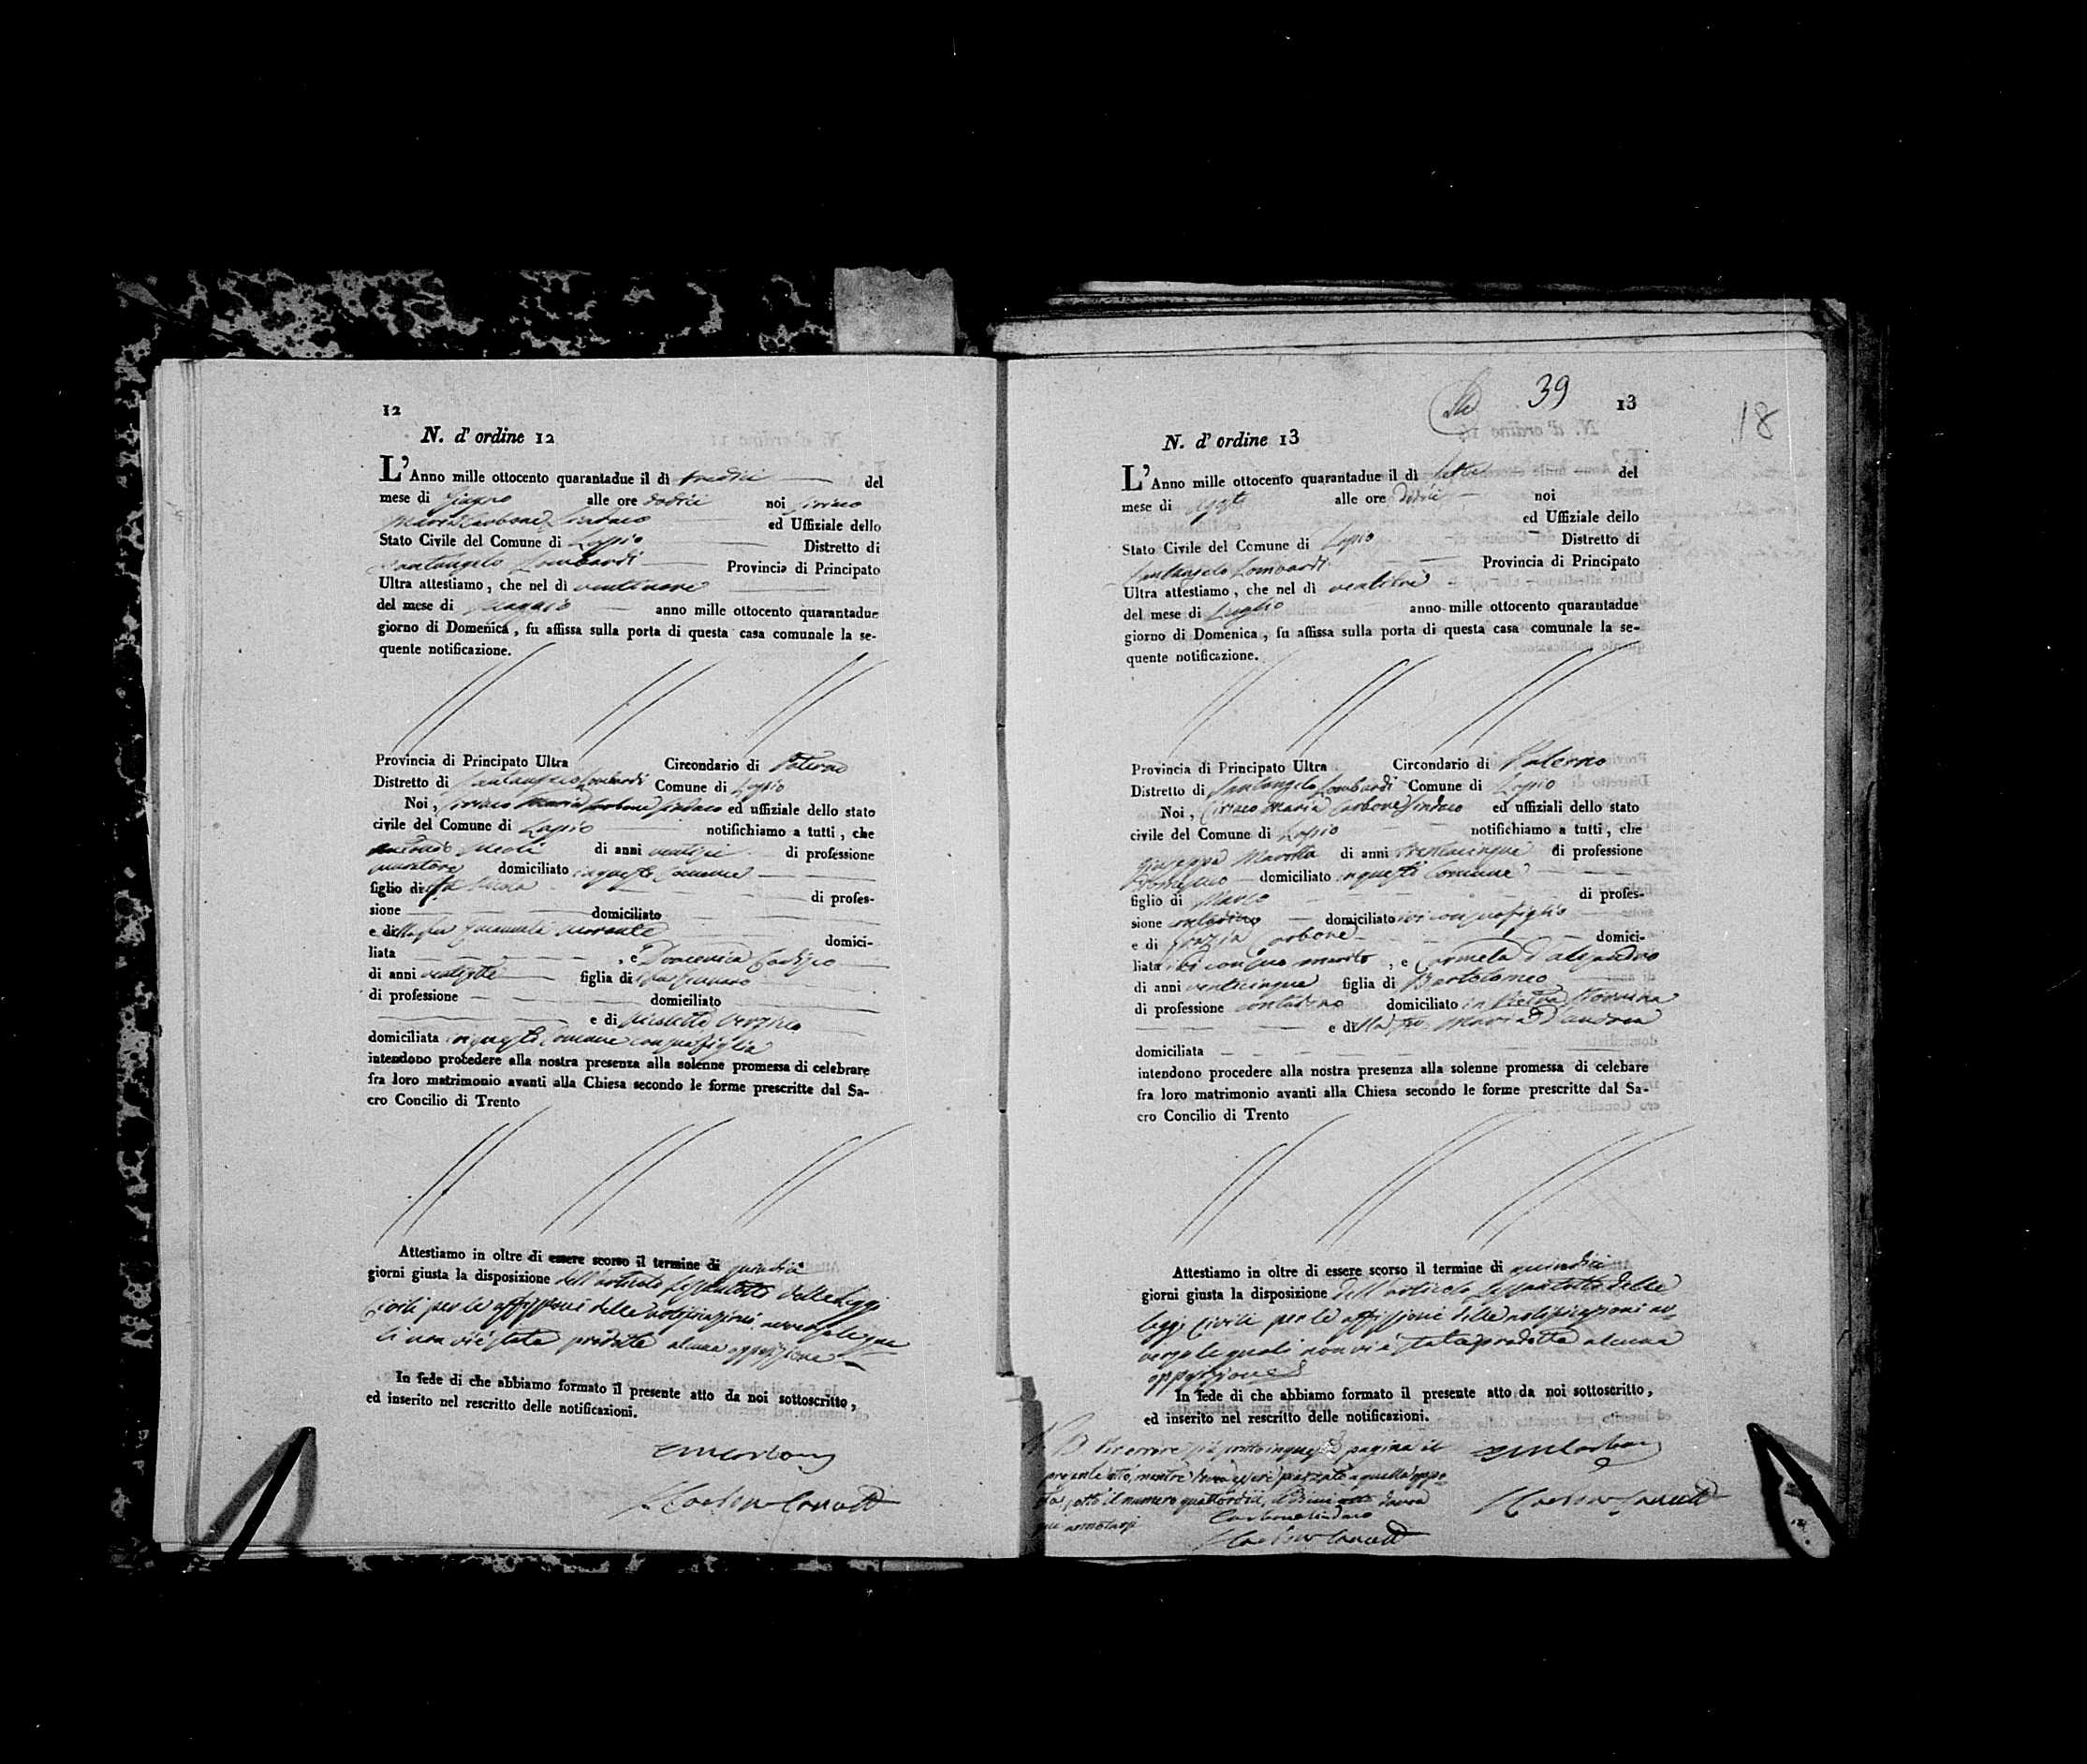 12
N. d'ordine 12
L'Anno mille ottocento quarantadue il dì tredici del
mese di Giugno alle ore dodici noi Ciriaco
Maria Carbone Sindaco ed Uffiziale dello
Stato Civile del Comune di Lapio Distretto di
Santangelo Lombardi Provincia di Principato
Ultra attestiamo, che nel dì ventinove
del mese di Maggio anno mille ottocento quarantadue
giorno di Domenica, fu affissa sulla porta di questa casa comunale la se-
quente notificazione.
Provincia di Principato Ultra Circondario di Paterno
Distretto di Santangelo Lombardi Comune di Lapio
Noi, Ciriaco Maria Carbone Sindaco ed uffiziale dello stato
civile del Comune di Lapio notifichiamo a tutti, che
Antonio di anni ventisei di professione
muratore domiciliato in questo Comune
figlio del fu Nicola di profes-
sione domiciliato
e della fu Emanuela domici-
liata , e Domenica
di anni ventisette figlia di
di professione domiciliato
e di Nicoletta
domiciliata in questo Comune con sua figlia
intendono procedere alla nostra presenza alla solenne promessa di celebrare
fra loro matrimonio avanti alla Chiesa secondo le forme prescritte dal Sa-
cro Concilio di Trento
Attestiamo in oltre di essere scorso il termine di quindici
giorni giusta la disposizione dell'articolo sessantotto delle Leggi
Civili per le affissioni delle notificazioni, avverso le qua
li non vi è stata prodotta alcuna opposizione
In fede di che abbiamo formato il presente atto da noi sottoscritto,
ed inserito nel rescritto delle notificazioni.
39
13
18
N. d'ordine 13
L'Anno mille ottocento quarantadue il dì sette del
mese di Agosto alle ore dodici noi
ed Uffiziale dello
Stato Civile del Comune di Lapio Distretto di
Santangelo Lombardi Provincia di Principato
Ultra attestiamo, che nel dì ventitre
del mese di Luglio anno mille ottocento quarantadue
giorno di Domenica, fu affissa sulla porta di questa casa comunale la se-
quente notificazione.
Provincia di Principato Ultra Circondario di Paterno
Distretto di Santangelo Lombardi Comune di Lapio
Noi, Ciriaco Maria Carbone Sindaco ed uffiziali dello stato
civile del Comune di Lapio notifichiamo a tutti, che
Giuseppe Marotta di anni trentacinque di professione
domiciliato in questo Comune
figlio di Marco di profes-
sione contadino domiciliato ivi con suo figlio
e di Grazia Carbone domici-
liata ivi con suo marito , e Carmela D'alesandro
di anni venticinque figlia di Bartolomeo
di professione contadino domiciliato in Pietra Stornina
e della fu Maria D'andrea
domiciliata
intendono procedere alla nostra presenza alla solenne promessa di celebare
fra loro matrimonio avanti alla Chiesa secondo le forme prescritte dal Sa-
cro Concilio di Trento
Attestiamo in oltre di essere scorso il termine di quindici
giorni giusta la disposizione dell'articolo sessantotto delle
leggi Civili per le affissioni delle notificazioni av-
verso le quali non vi è stata prodotta alcuna
opposizione
In fede di che abbiamo formato il presente atto da noi sottoscritto,
ed inserito nel rescritto delle notificazioni.
N. B. Per errore si è scritto in questa pagina il
presente atto, mentre dovea essere piazzato a quella oppo-
sta, sotto il numero quattordici, il dovea
qui annotarsi
Carbone Sindaco